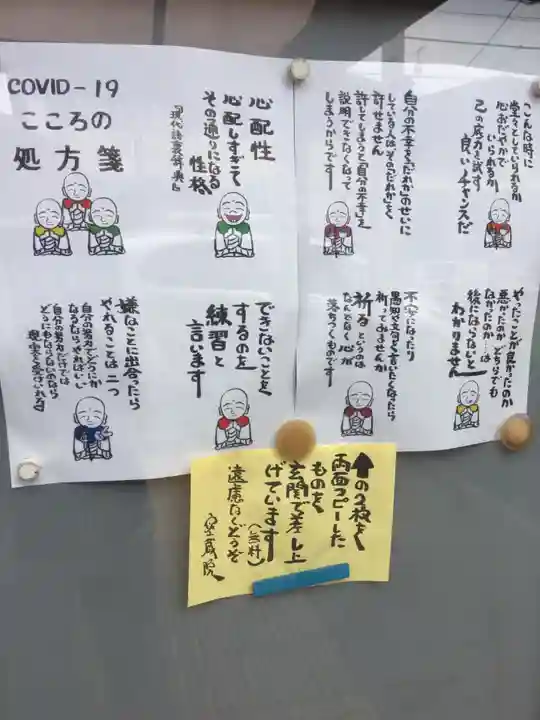 COVID-19
こころの
処方箋
心配性
心配しすぎて
その通りになる
性格
『現代語裏辞典』
嫌なことに出合ったら
やれることは二つ
自分の努力でどうにか
なるならやればいい
自分の努力だけでは
どうにもならないのなら
現実を受け入れる
できないことを
するのを
練習と
言います
こんな時に
堂々としていられるか
心おだやかで
いられるか
己の底力を試す
良いチャンスだ
自分の不幸を「だれか」のせいに
している人は、その「だれか」を
許せません
許してしまうと「自分の不幸」を
説明できなくなって
しまうからです
やったことが良かったのか
悪かったのか どちらでも
なかったのか は
後にならないと
わかりません
不安になったり
愚知や文句を言いたくなったら
祈ってみませんか
祈るというのは
なんとなく心が
落ちつくものです
↑の2枚を
両面コピーした
ものを
玄関で差し上
げています
(無料)
遠慮なくどうぞ
密蔵院